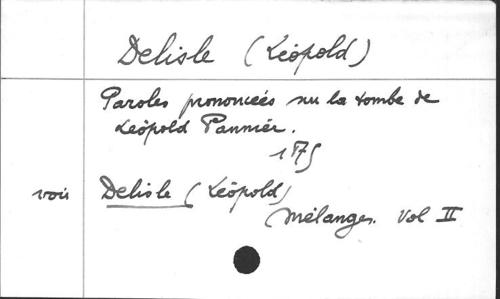 Delisle (Léopold)
Paroles prononcées sur la tombe de
Léopold Pannier.
1875
voir Delisle (Léopold)
Mélanges. Vol II